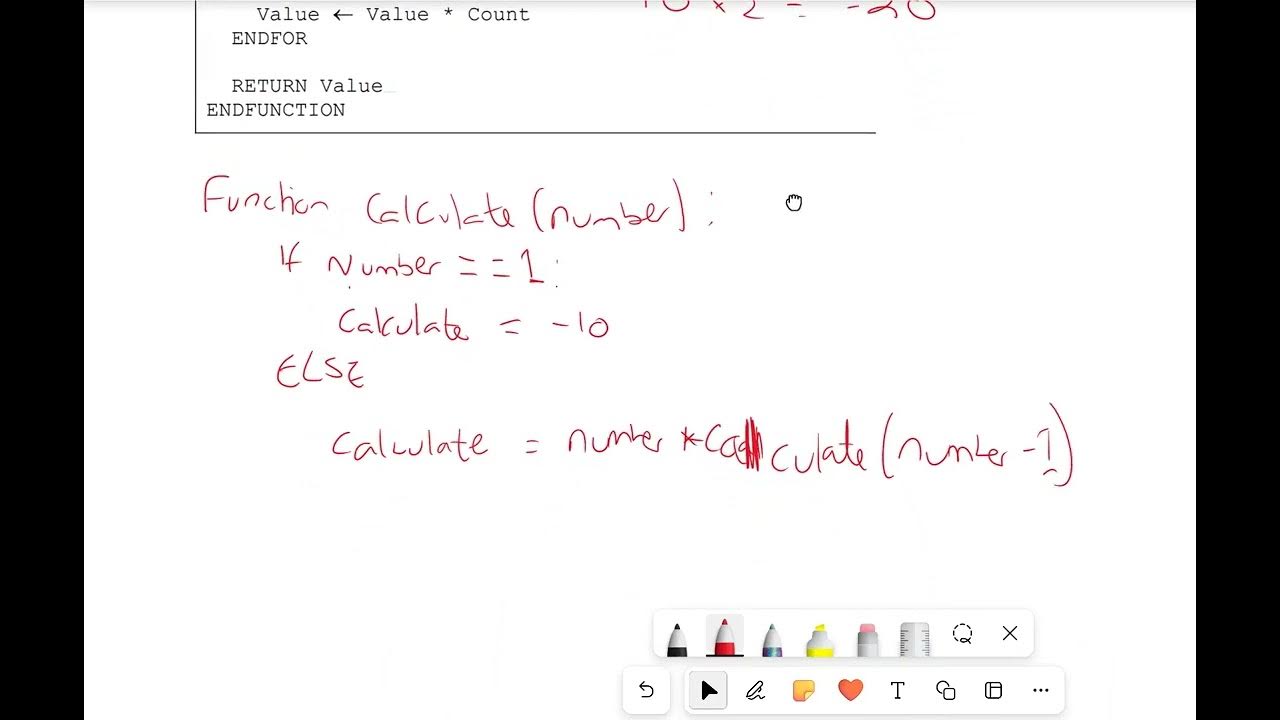 Value ← Value * Count
10 * 2 = -20
ENDFOR
RETURN Value
ENDFUNCTION
Function Calculate(number):
If Number == 1:
Calculate = -10
ELSE
Calculate = number * Calculate(number - 1)
T